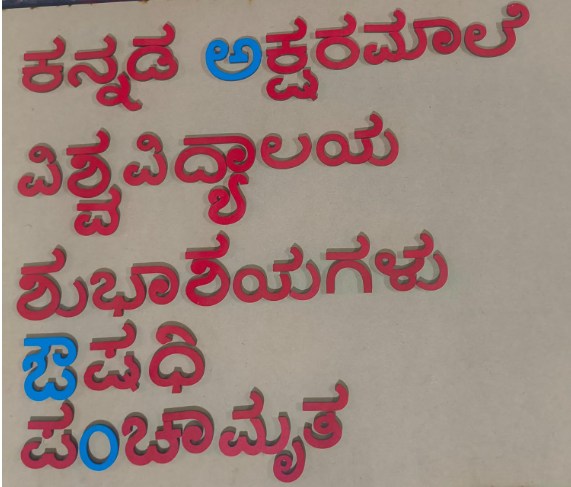 ಕನ್ನಡ ಅಕ್ಷರಮಾಲೆ
ವಿಶ್ವವಿದ್ಯಾಲಯ
ಶುಭಾಶಯಗಳು
ಔಷಧಿ
ಪಂಚಾಮೃತ